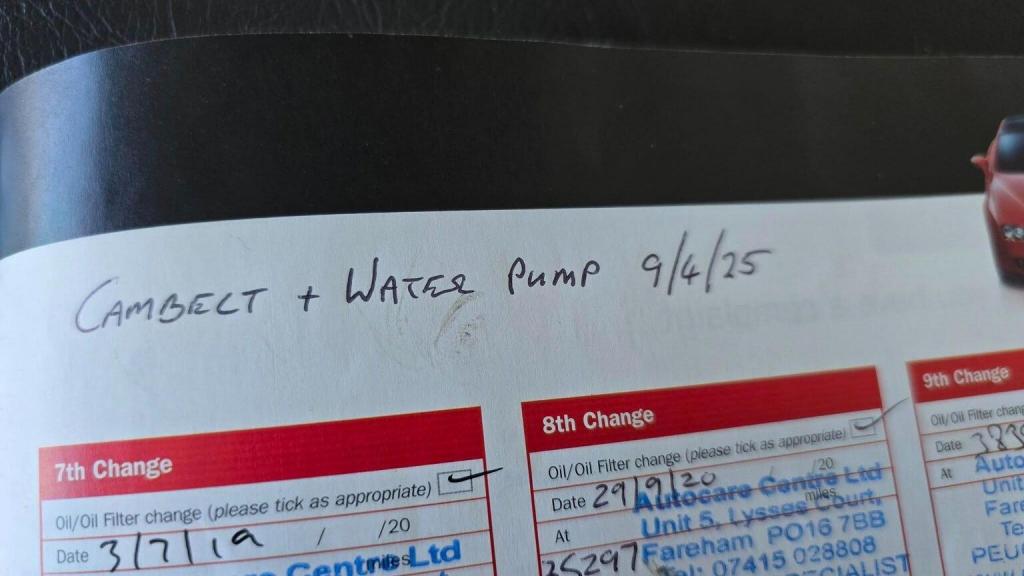 CAMBELT + WATER PUMP 9/4/25
7th Change
Oil/Oil Filter change (please tick as appropriate)
Date 3/7/19 / /20
miles
Centre Ltd
8th Change
Oil/Oil Filter change (please tick as appropriate)
Date 29/9/20 /20
Autocare Centre Ltd
miles
At
Unit 5, Lysses Court,
25297
Fareham PO16 7BB
Tel: 07415 028808
9th Change
Oil/Oil Filter
Date
At
Auto
Unit
Fare
Te
PEU